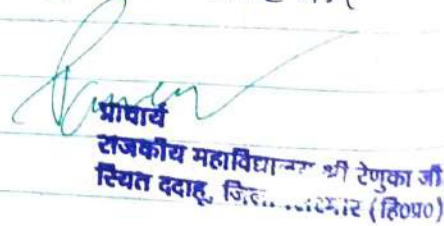 प्राचार्य
राजकीय महाविद्यालय श्री रेणुका जी
स्थित ददाहू, जिला (हि०प्र०)